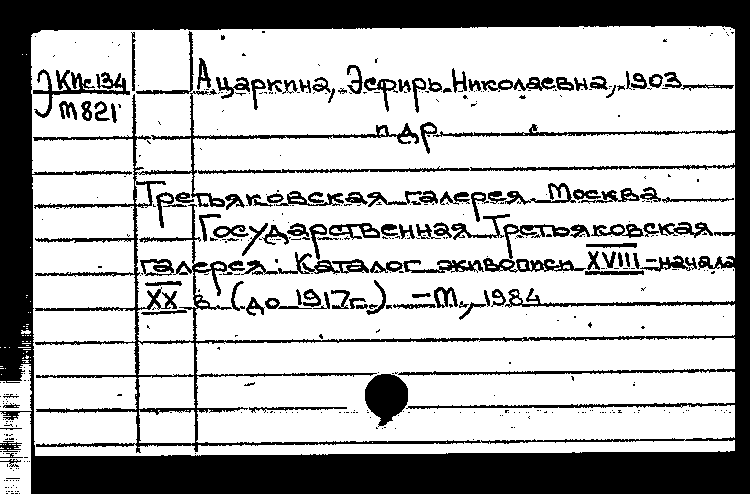 КПс134
М821
Ацаркина, Эсфирь Николаевна, 1903
п др.
Третьяковская галерея. Москва
Государственная Третьяковская
галерея: Каталог живописи XVIII-начала
XX в (до 1917г.) -М., 1984